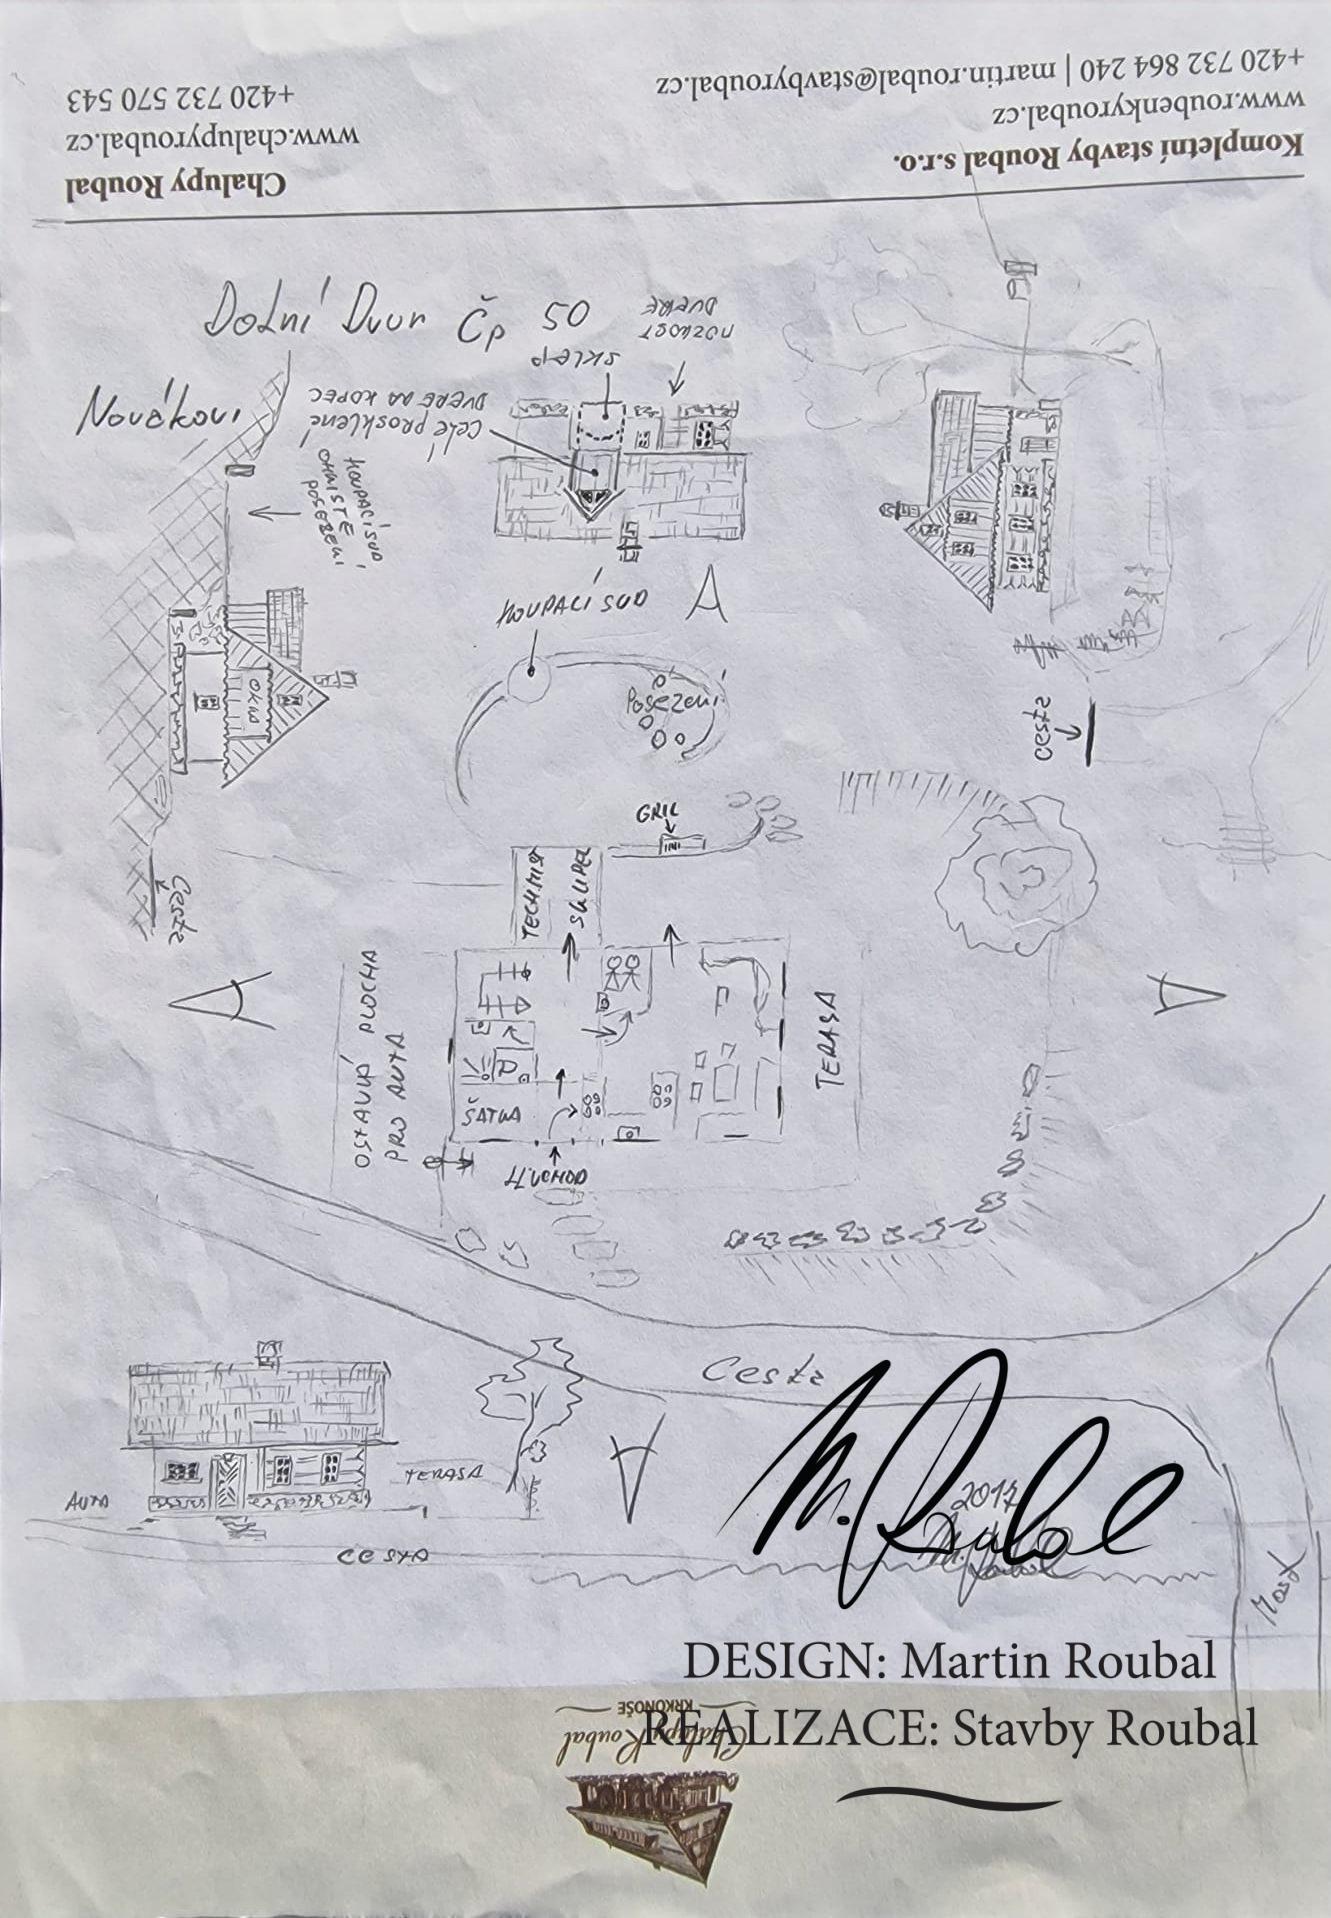 Kompletní stavby Roubal s.r.o.
www.roubenkyroubal.cz
+420 732 864 240 | martin.roubal@stavbyroubal.cz
Chalupy Roubal
www.chalupyroubal.cz
+420 732 570 543
Dolní Dvur Čp 50
Novákovi
MOŽNOST
DVEŘE
SKLEP
CELÉ PROSKLENÉ
DVEŘE NA KOPEC
KOUPACÍ SUD
OHNIŠTĚ
POSEZENÍ
OKNO
KOUPACÍ SUD
A
Posezení
Cesta
Cesta
GRIL
TECH.MÍS
SKLIPEK
A
A
OSTAVNÁ PLOCHA
PRO AUTA
TERASA
ŠATNA
H.VCHOD
Cesta
A
AUTA
TERASA
CESTA
2017
M. Roubal
M. Roubal
Most
DESIGN: Martin Roubal
REALIZACE: Stavby Roubal
Chalupy Roubal
KRKONOŠE